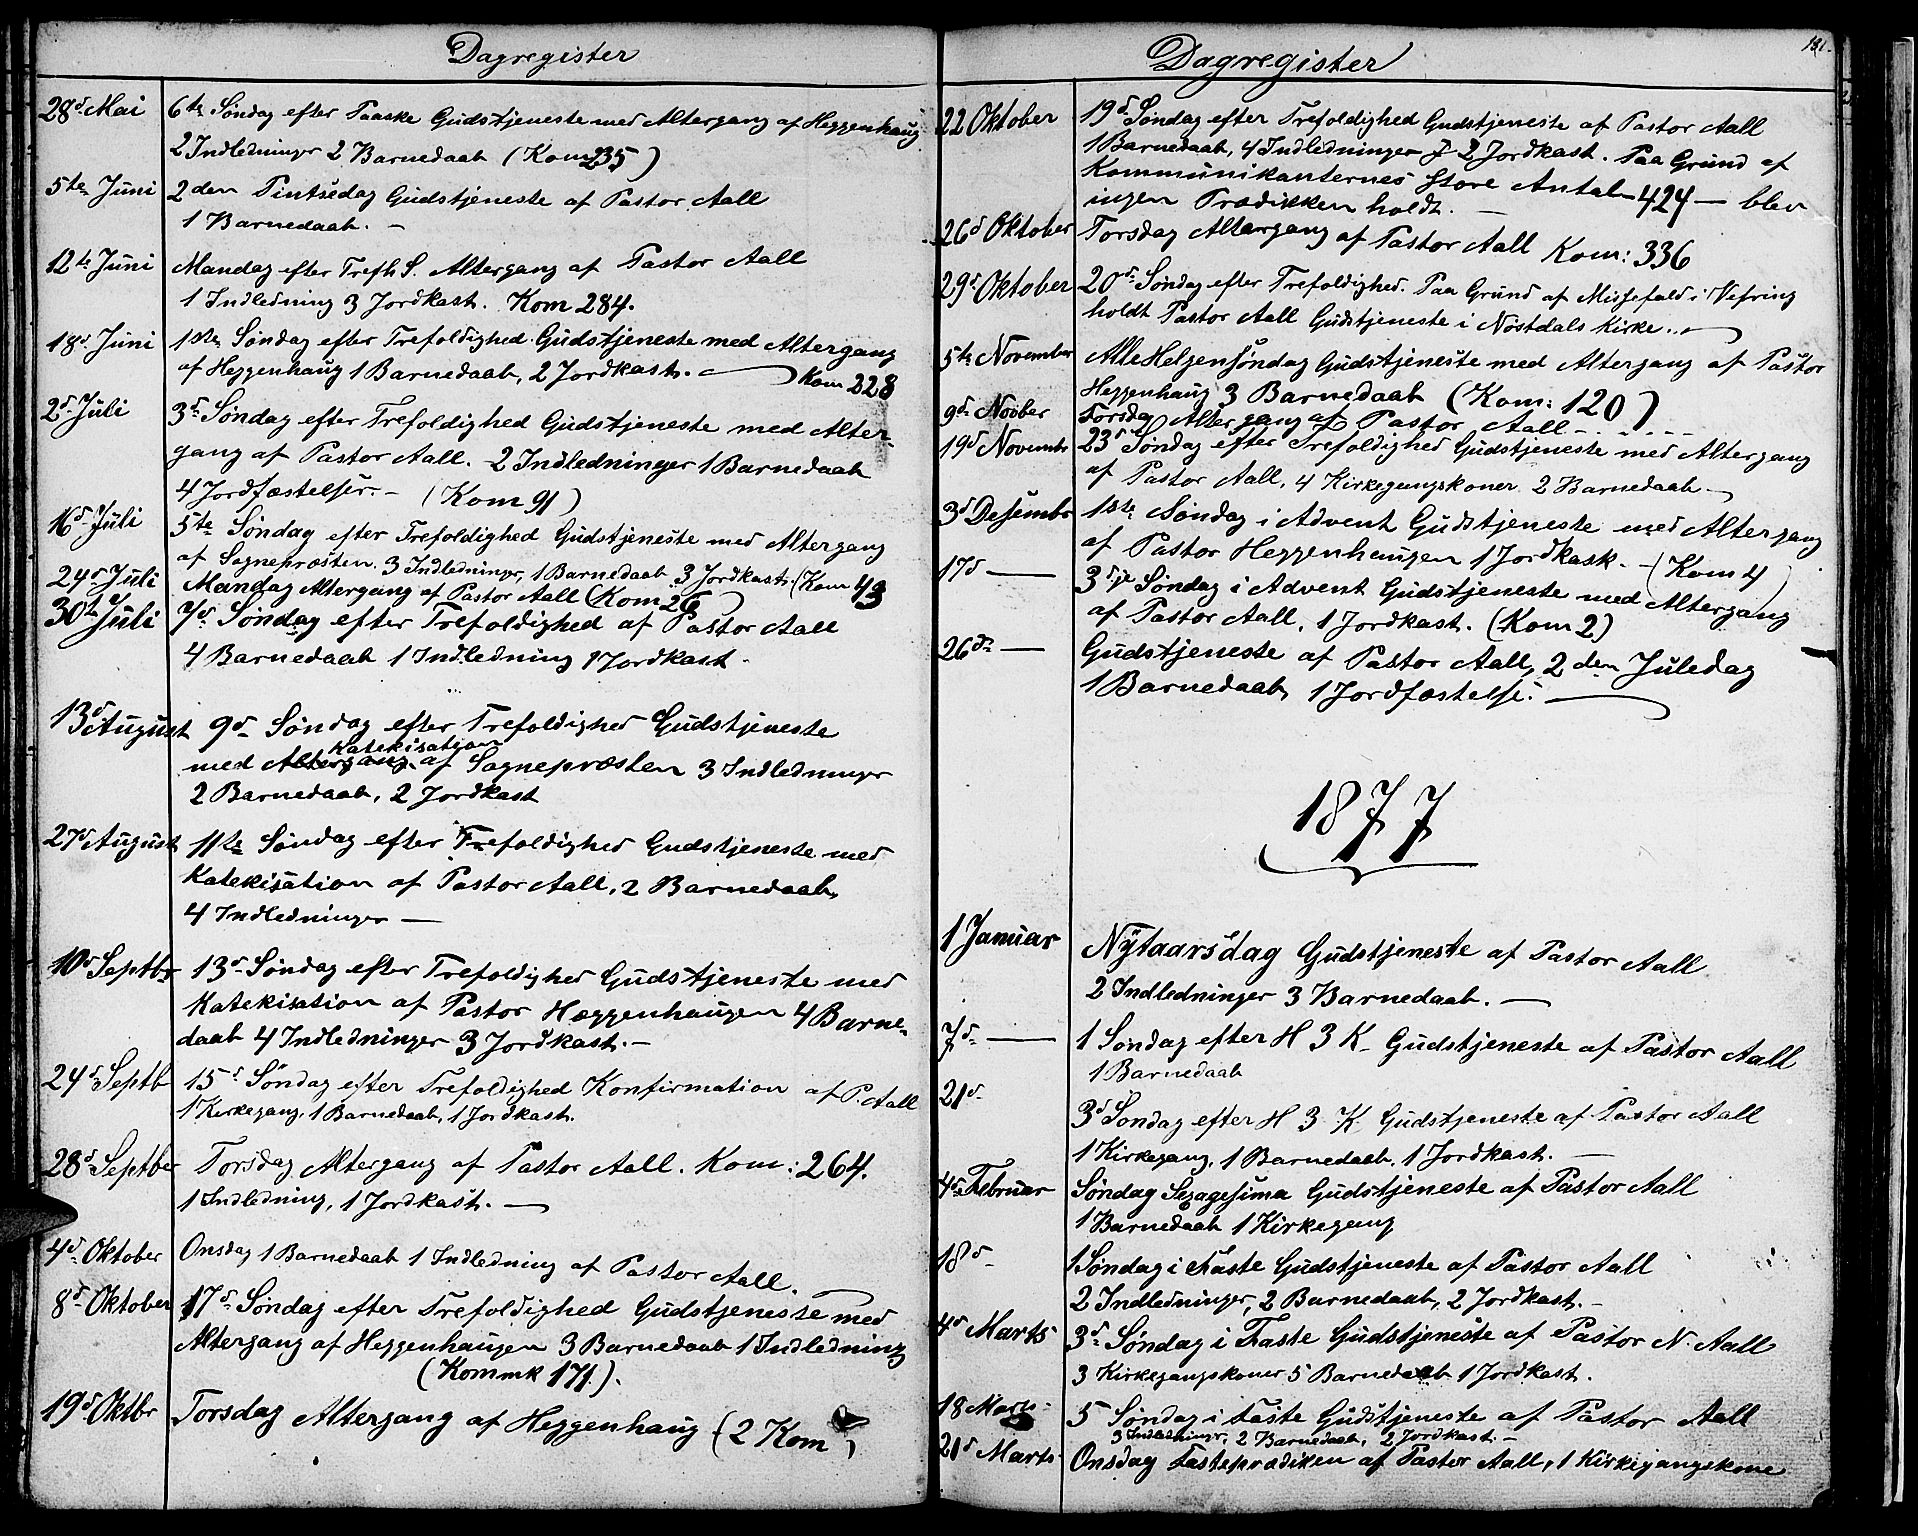 Dagregister
28d. Mai 6te Søndag efter Paaske Gudstjeneste med Altergang af Heggenhaug
2 Indledninger 2 Barnedaab (Kom 235)
5te Juni 2den Pintsedag Gudstjeneste af Pastor Aall
1 Barnedaab. -
12te Juni Mandag efter Trefh S. Altergang af Pastor Aall
1 Indledning 3 Jordkast. Kom 284.
18d. Juni 1ste Søndag efter Trefoldighed Gudstjeneste med Altergang
af Heggenhaug 1 Barnedaab, 2 Jordkast. — Kom 228
2d. Juli 3d. Søndag efter Trefoldighed Gudstjeneste med Alter-
gang af Pastor Aall. 2 Indledninger 1 Barnedaab
4 Jordfæstelser. - (Kom 91)
16d. Juli 5te Søndag efter Trefoldighed Gudstjeneste med Altergang
af Sognepræsten. 3 Indledninger, 1 Barnedaab 3 Jordkast. (Kom 43
24d. Juli Mandag Altergang af Pastor Aall (Kom 26)
30t Juli 7d. Søndag efter Trefoldighed af Pastor Aall
4 Barnedaab 1 Indledning 1 Jordkast.
13d. August 9d. Søndag efter Trefoldighed Gudstjeneste
Katekisation
med Altergang af Sognepræsten 3 Indledninger
2 Barnedaab, 2 Jordkast
27d August 11te Søndag efter Trefoldighed Gudstjeneste med
Katekisation af Pastor Aall, 2 Barnedaab,
4 Indledninger —
10d Septbr 13d. Søndag efter Trefoldighed Gudstjeneste med
Katekisation af Pastor Heggenhaugen 4 Barne-
daab 4 Indledninger 3 Jordkast. -
24d Septb 15d. Søndag efter Trefoldighed Konfirmation af P. Aall
1 Kirkegang, 1 Barnedaab, 1 Jordkast.
28d Septber Torsdag Altergang af Pastor Aall. Kom: 264.
1 Indledning, 1 Jordkast. —
4d. Oktober Onsdag 1 Barnedaab 1 Indledning af Pastor Aall.
8d. Oktober 17d. Søndag efter Trefoldighed Gudstjeneste med
Altergang af Heggenhaugen 3 Barnedaab 1 Indledning
(Kommk 171.).
19d Oktbr Torsdag Altergang af Heggenhaug (2 Kom )
Dagregister
181.
22 Oktober 19d. Søndag efter Trefoldighed Gudstjeneste af Pastor Aall
1 Barnedaab, 4 Indledninger & 2 Jordkast. Paa Grund af
Kommunikanternes store Antal - 424 - blev
ingen Prædikken holdt. —
26d Oktober Torsdag Altergang af Pastor Aall Kom: 336
29d. Oktober 20d. Søndag efter Trefoldighed. Paa Grund af Missefald i Vefring
holdt Pastor Aall Gudstjeneste i Nöstdals Kirke. —
5te November Alle Helgensøndag Gudstjeneste med Altergang af Pastor
Heggenhaug 3 Barnedaab (Kom: 120)
9d. Novber Torsdag Altergang af Pastor Aall - . - . - . -
19d Novembr 23d Søndag efter Trefoldighed Gudstjeneste med Altergang
af Pastor Aall, 4 Kirkegangskoner 2 Barnedaab -
3d Desembr 1ste Søndag i Advent Gudstjeneste med Altergang
af Pastor Heggenhaugen 1 Jordkask. - (Kom 4)
17d — 3dje Søndag i Advent Gudstjeneste med Altergang
af Pastor Aall, 1 Jordkast. (Kom 2)
26d. — Gudstjeneste af Pastor Aall, 2den Juledag
1 Barnedaab, 1 Jordfæstelse. —
1877
1 Januar Nytaarsdag Gudstjeneste af Pastor Aall
2 Indledninger 3 Barnedaab. —
7d. — 1 Søndag efter H 3 K. Gudstjeneste af Pastor Aall
1 Barnedaab
21d. 3d Søndag efter H 3 K Gudstjeneste af Pastor Aall
1 Kirkegang, 1 Barnedaab, 1 Jordkast. —
4d. Februar Søndag Sexagesima Gudstjeneste af Pastor Aall
1 Barnedaab 1 Kirkegang
18d. 1 Søndag i Faste Gudstjeneste af Pastor Aall
2 Indledninger, 2 Barnedaab, 2 Jordkast. -
4d Marts 3d. Søndag i Faste Gudstjeneste af Pastor N. Aall
3 Kirkegangskoner 5 Barnedaab 1 Jordkast.
18 Marts 5 Søndag i Faste Gudstjeneste af Pastor Aall
3 Indledninger, 2 Barnedaab, 2 Jordkast. -
21d Marts Onsdag Fasteprædiken af Pastor Aall, 1 Kirkegangskone